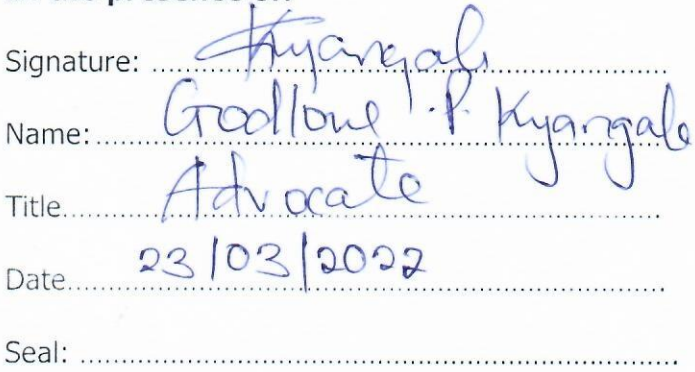 presence of:
Signature: Kyangali
Name: Godlove P. Kyangali
Title Advocate
Date 23/03/2022
Seal: